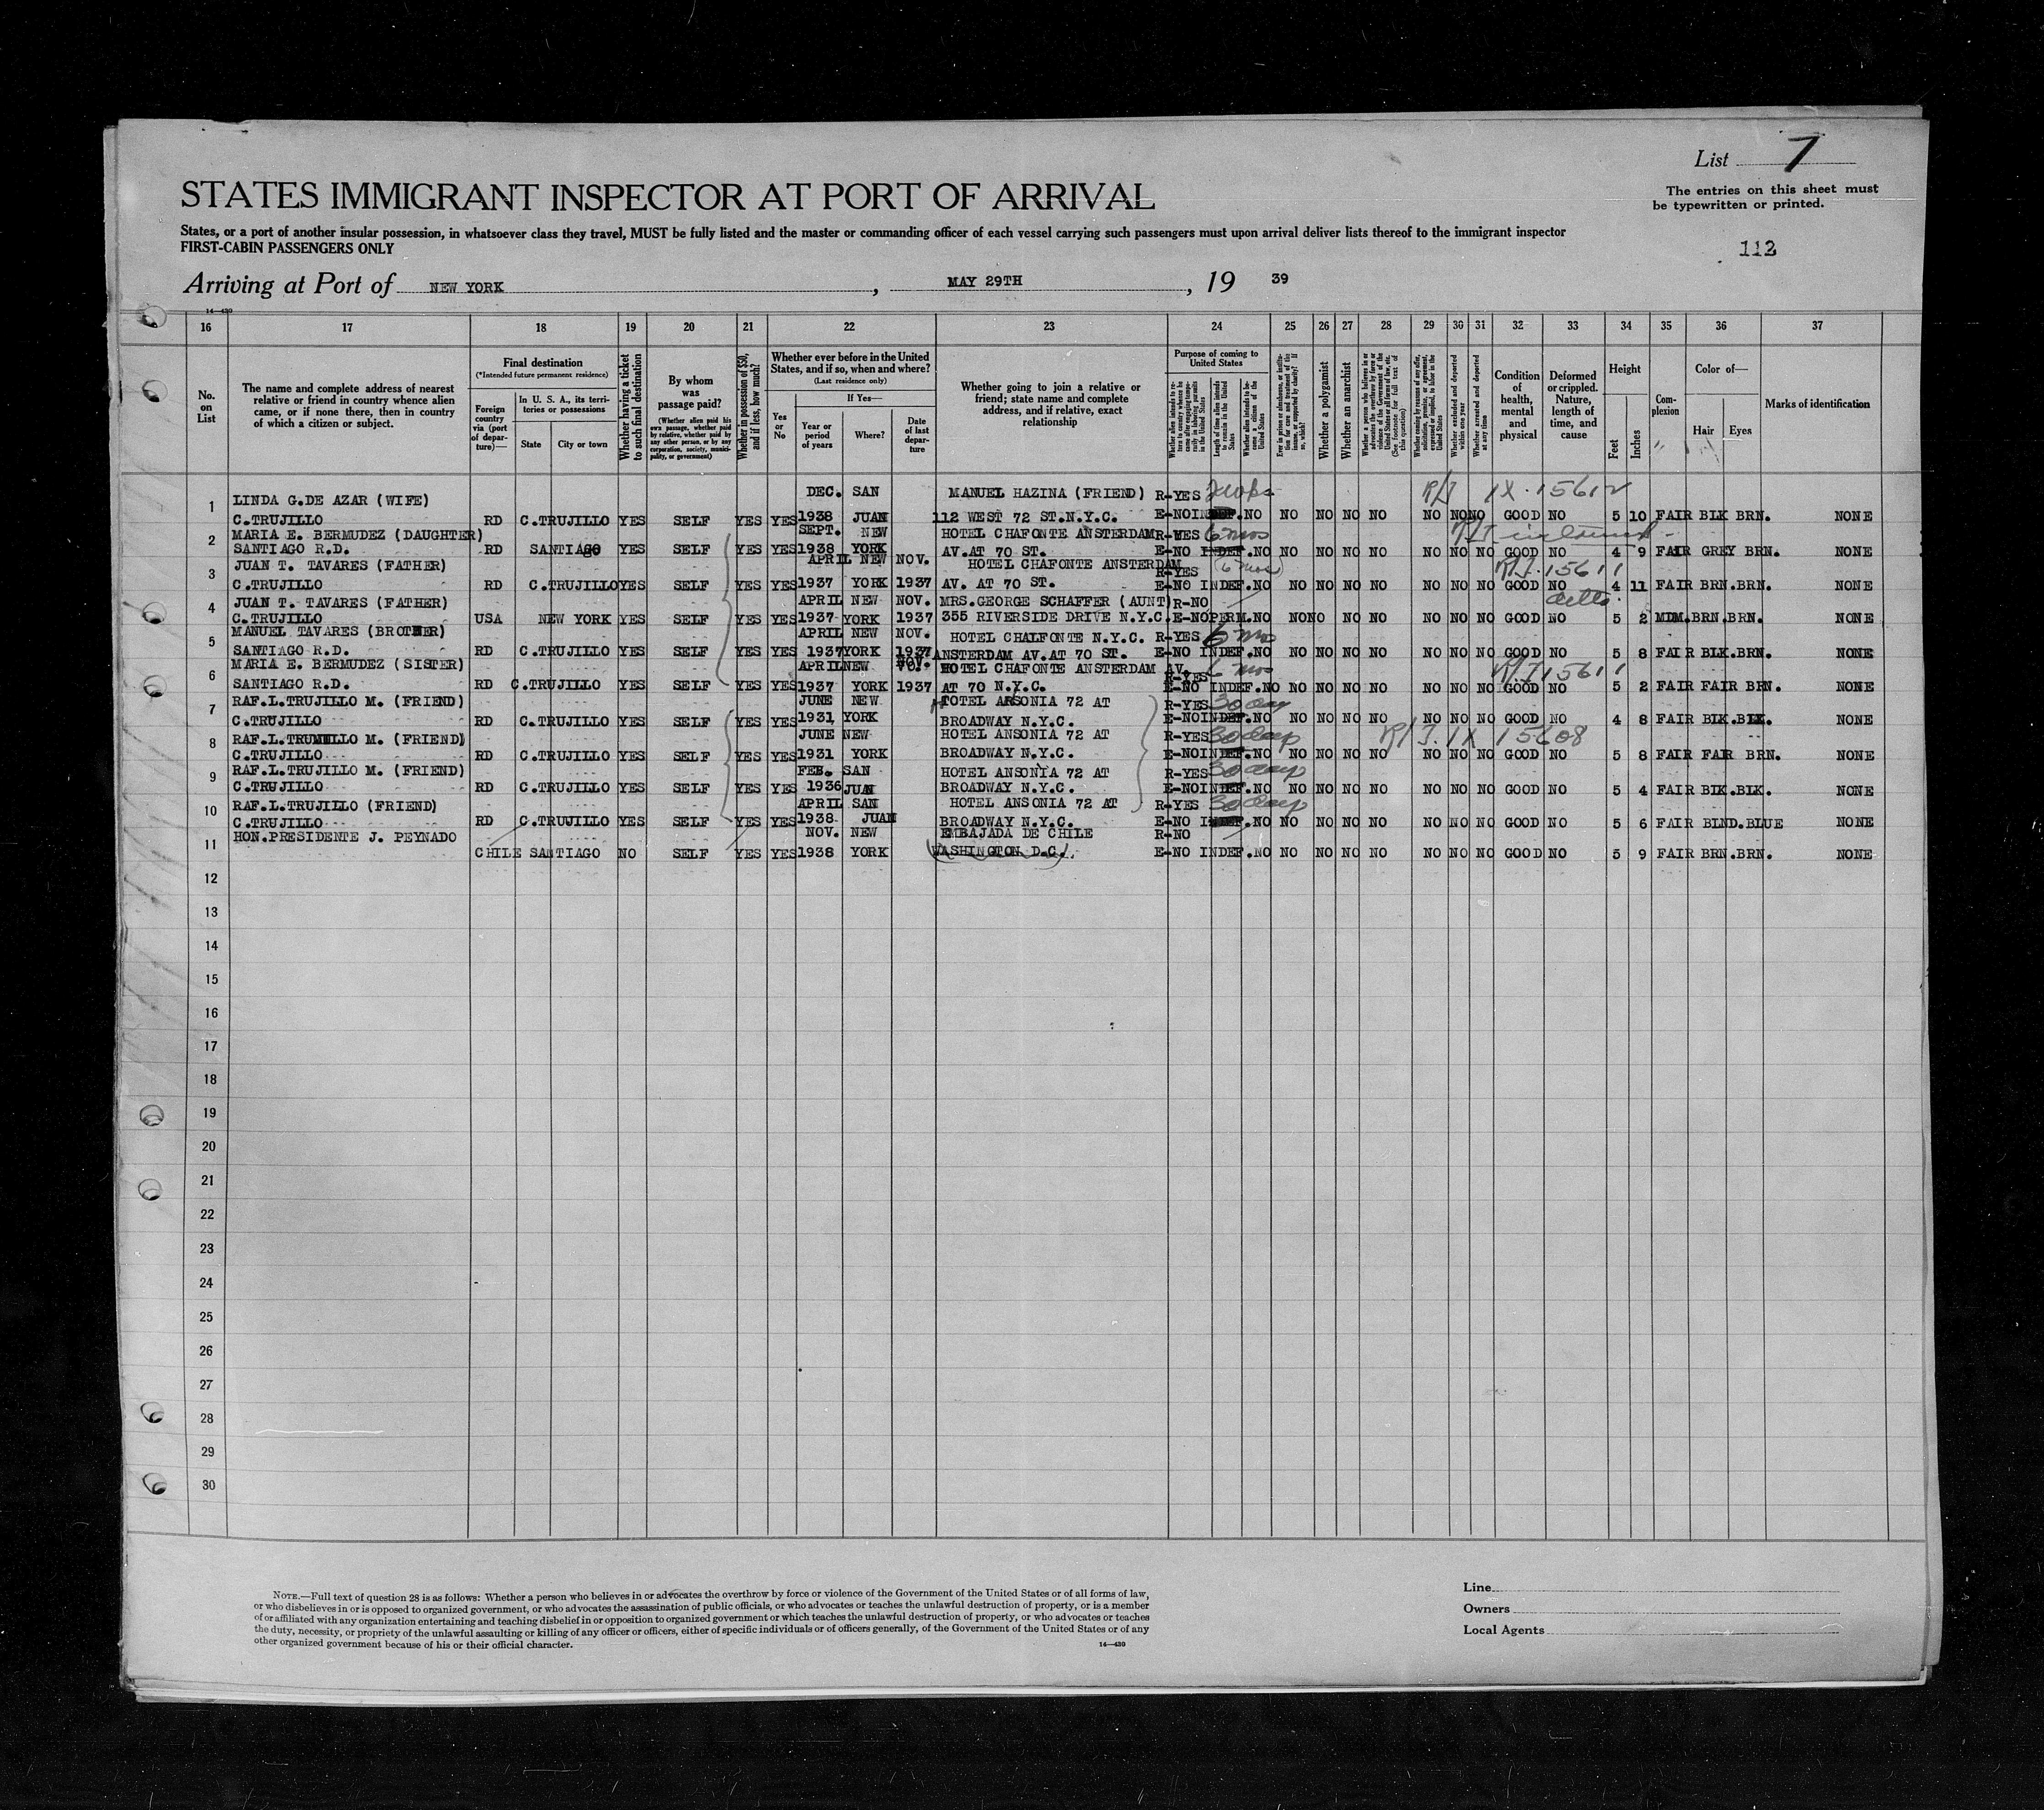 List 7
STATES IMMIGRANT INSPECTOR AT PORT OF ARRIVAL
The entries on this sheet must
be typewritten or printed.
States, or a port of another insular possession, in whatsoever class they travel, MUST be fully listed and the master or commanding officer of each vessel carrying such passengers must upon arrival deliver lists thereof to the immigrant inspector
FIRST-CABIN PASSENGERS ONLY
112
Arriving at Port of NEW YORK, MAY 29TH, 19 39
14—430
16 17 18 19 20 21 22 23 24 25 26 27 28 29 30 31 32 33 34 35 36 37
No. on List
The name and complete address of nearest relative or friend in country whence alien came, or if none there, then in country of which a citizen or subject.
Final destination
(*Intended future permanent residence)
Foreign country via (port of departure)—
In U. S. A., its territories or possessions
State
City or town
Whether having a ticket to such final destination
By whom was passage paid?
(Whether alien paid his own passage, whether paid by relative, whether paid by any other person, or by any corporation, society, municipality, or government)
Whether in possession of $50, and if less, how much?
Whether ever before in the United States, and if so, when and where?
(Last residence only)
Yes or No
If Yes—
Year or period of years
Where?
Date of last departure
Whether going to join a relative or friend; state name and complete address, and if relative, exact relationship
Purpose of coming to United States
Length of time alien intends to remain in the United States
Whether alien intends to become a citizen of the United States
Whether a polygamist
Whether an anarchist
Whether arrested and deported at any time
Condition of health, mental and physical
Deformed or crippled. Nature, length of time, and cause
Height
Feet
Inches
Complexion
Color of—
Hair
Eyes
Marks of identification
1 LINDA G.DE AZAR (WIFE) DEC. SAN MANUEL HAZINA (FRIEND) R-YES R/J IX 15612
C.TRUJILLO RD C.TRUJILLO YES SELF YES YES 1938 JUAN 112 WEST 72 ST.N.Y.C. E-NO INDEF.NO NO NO NO NO NO NO NO GOOD NO 5 10 FAIR BLK BRN. NONE
2 MARIA E. BERMUDEZ (DAUGHTER) SEPT. NEW HOTEL CHAFONTE AMSTERDAM R-YES 6 mos
SANTIAGO R.D. RD SANTIAGO YES SELF YES YES 1938 YORK AV.AT 70 ST. E-NO INDEF.NO NO NO NO NO NO NO NO GOOD NO 4 9 FAIR GREY BRN. NONE
3 JUAN T. TAVARES (FATHER) APRIL NEW NOV. HOTEL CHAFONTE AMSTERDAM R-YES (6 mos) R/J 15611
C.TRUJILLO RD C.TRUJILLO YES SELF YES YES 1937 YORK 1937 AV. AT 70 ST. E-NO INDEF.NO NO NO NO NO NO NO NO GOOD NO 4 11 FAIR BRN.BRN. NONE
4 JUAN T. TAVARES (FATHER) APRIL NEW NOV. MRS.GEORGE SCHAFFER (AUNT) R-NO
C.TRUJILLO USA NEW YORK YES SELF YES YES 1937 YORK 1937 355 RIVERSIDE DRIVE N.Y.C. E-NO PERM.NO NO NO NO NO NO NO NO GOOD NO 5 2 MDM.BRN.BRN. NONE
5 MANUEL TAVARES (BROTHER) APRIL NEW NOV. HOTEL CHALFONTE N.Y.C. R-YES 6 mo
SANTIAGO R.D. RD C.TRUJILLO YES SELF YES YES 1937 YORK 1937 AMSTERDAM AV.AT 70 ST. E-NO INDEF.NO NO NO NO NO NO NO NO GOOD NO 5 8 FAIR BLK.BRN. NONE
6 MARIA E. BERMUDEZ (SISTER) APRIL NEW NOV. HOTEL CHAFONTE AMSTERDAM AV. R-YES 6 mos R/J 15611
SANTIAGO R.D. RD C.TRUJILLO YES SELF YES YES 1937 YORK 1937 AT 70 N.Y.C. E-NO INDEF.NO NO NO NO NO NO NO NO GOOD NO 5 2 FAIR FAIR BRN. NONE
7 RAF.L.TRUJILLO M. (FRIEND) JUNE NEW HOTEL ANSONIA 72 AT R-YES 30 day
C.TRUJILLO RD C.TRUJILLO YES SELF YES YES 1931 YORK BROADWAY N.Y.C. E-NO INDEF.NO NO NO NO NO NO NO NO GOOD NO 4 8 FAIR BLK.BLK. NONE
8 RAF.L.TRUJILLO M. (FRIEND) JUNE NEW HOTEL ANSONIA 72 AT R-YES 30 days R/J IX 15608
C.TRUJILLO RD C.TRUJILLO YES SELF YES YES 1931 YORK BROADWAY N.Y.C. E-NO INDEF.NO NO NO NO NO NO NO NO GOOD NO 5 8 FAIR FAIR BRN. NONE
9 RAF.L.TRUJILLO M. (FRIEND) FEB. SAN HOTEL ANSONIA 72 AT R-YES 30 days
C.TRUJILLO RD C.TRUJILLO YES SELF YES YES 1936 JUAN BROADWAY N.Y.C. E-NO INDEF.NO NO NO NO NO NO NO NO GOOD NO 5 4 FAIR BLK.BLK. NONE
10 RAF.L.TRUJILLO (FRIEND) APRIL SAN HOTEL ANSONIA 72 AT R-YES 30 days
C.TRUJILLO RD C.TRUJILLO YES SELF YES YES 1938 JUAN BROADWAY N.Y.C. E-NO INDEF.NO NO NO NO NO NO NO NO GOOD NO 5 6 FAIR BLND.BLUE NONE
11 HON.PRESIDENTE J. PEYNADO NOV. NEW EMBAJADA DE CHILE R-NO
CHILE SANTIAGO NO SELF YES YES 1938 YORK WASHINGTON D.C. E-NO INDEF.NO NO NO NO NO NO NO NO GOOD NO 5 9 FAIR BRN.BRN. NONE
12
13
14
15
16
17
18
19
20
21
22
23
24
25
26
27
28
29
30
NOTE.—Full text of question 28 is as follows: Whether a person who believes in or advocates the overthrow by force or violence of the Government of the United States or of all forms of law,
or who disbelieves in or is opposed to organized government, or who advocates the assassination of public officials, or who advocates or teaches the unlawful destruction of property, or is a member
of or affiliated with any organization entertaining and teaching disbelief in or opposition to organized government or which teaches the unlawful destruction of property, or who advocates or teaches
the duty, necessity, or propriety of the unlawful assaulting or killing of any officer or officers, either of specific individuals or of officers generally, of the Government of the United States or of any
other organized government because of his or their official character.
14—430
Line
Owners
Local Agents